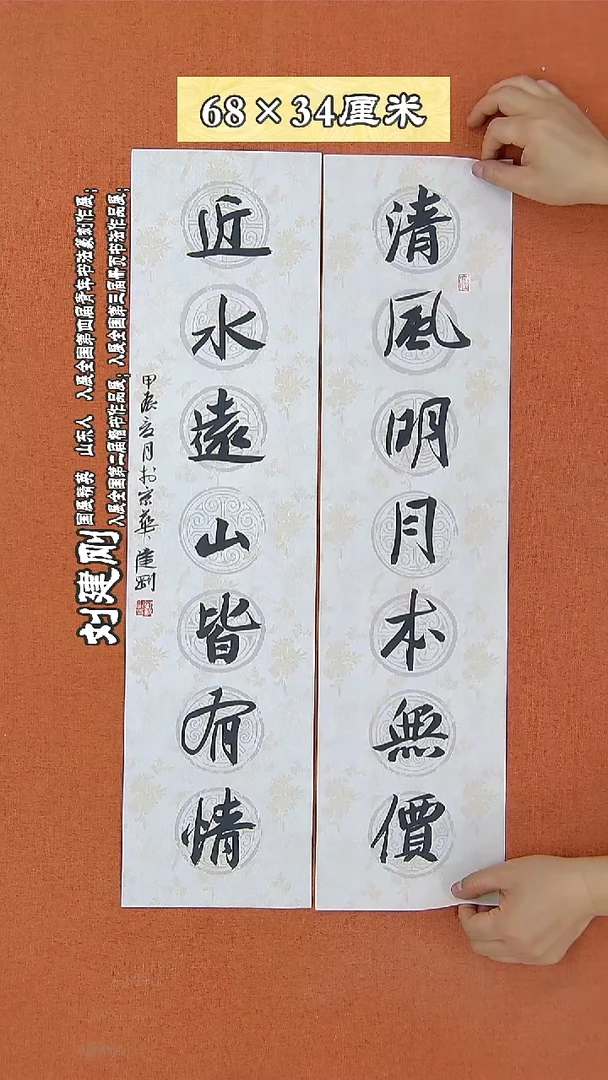 68×34厘米
清風明月本無價
近水遠山皆有情
甲辰京華建剛
刘建刚
国展精英 山东人 入展全国第四届青年书法篆刻作展；
入展全国第二届楷书作品展； 入展全国第三届册页书法作品展；